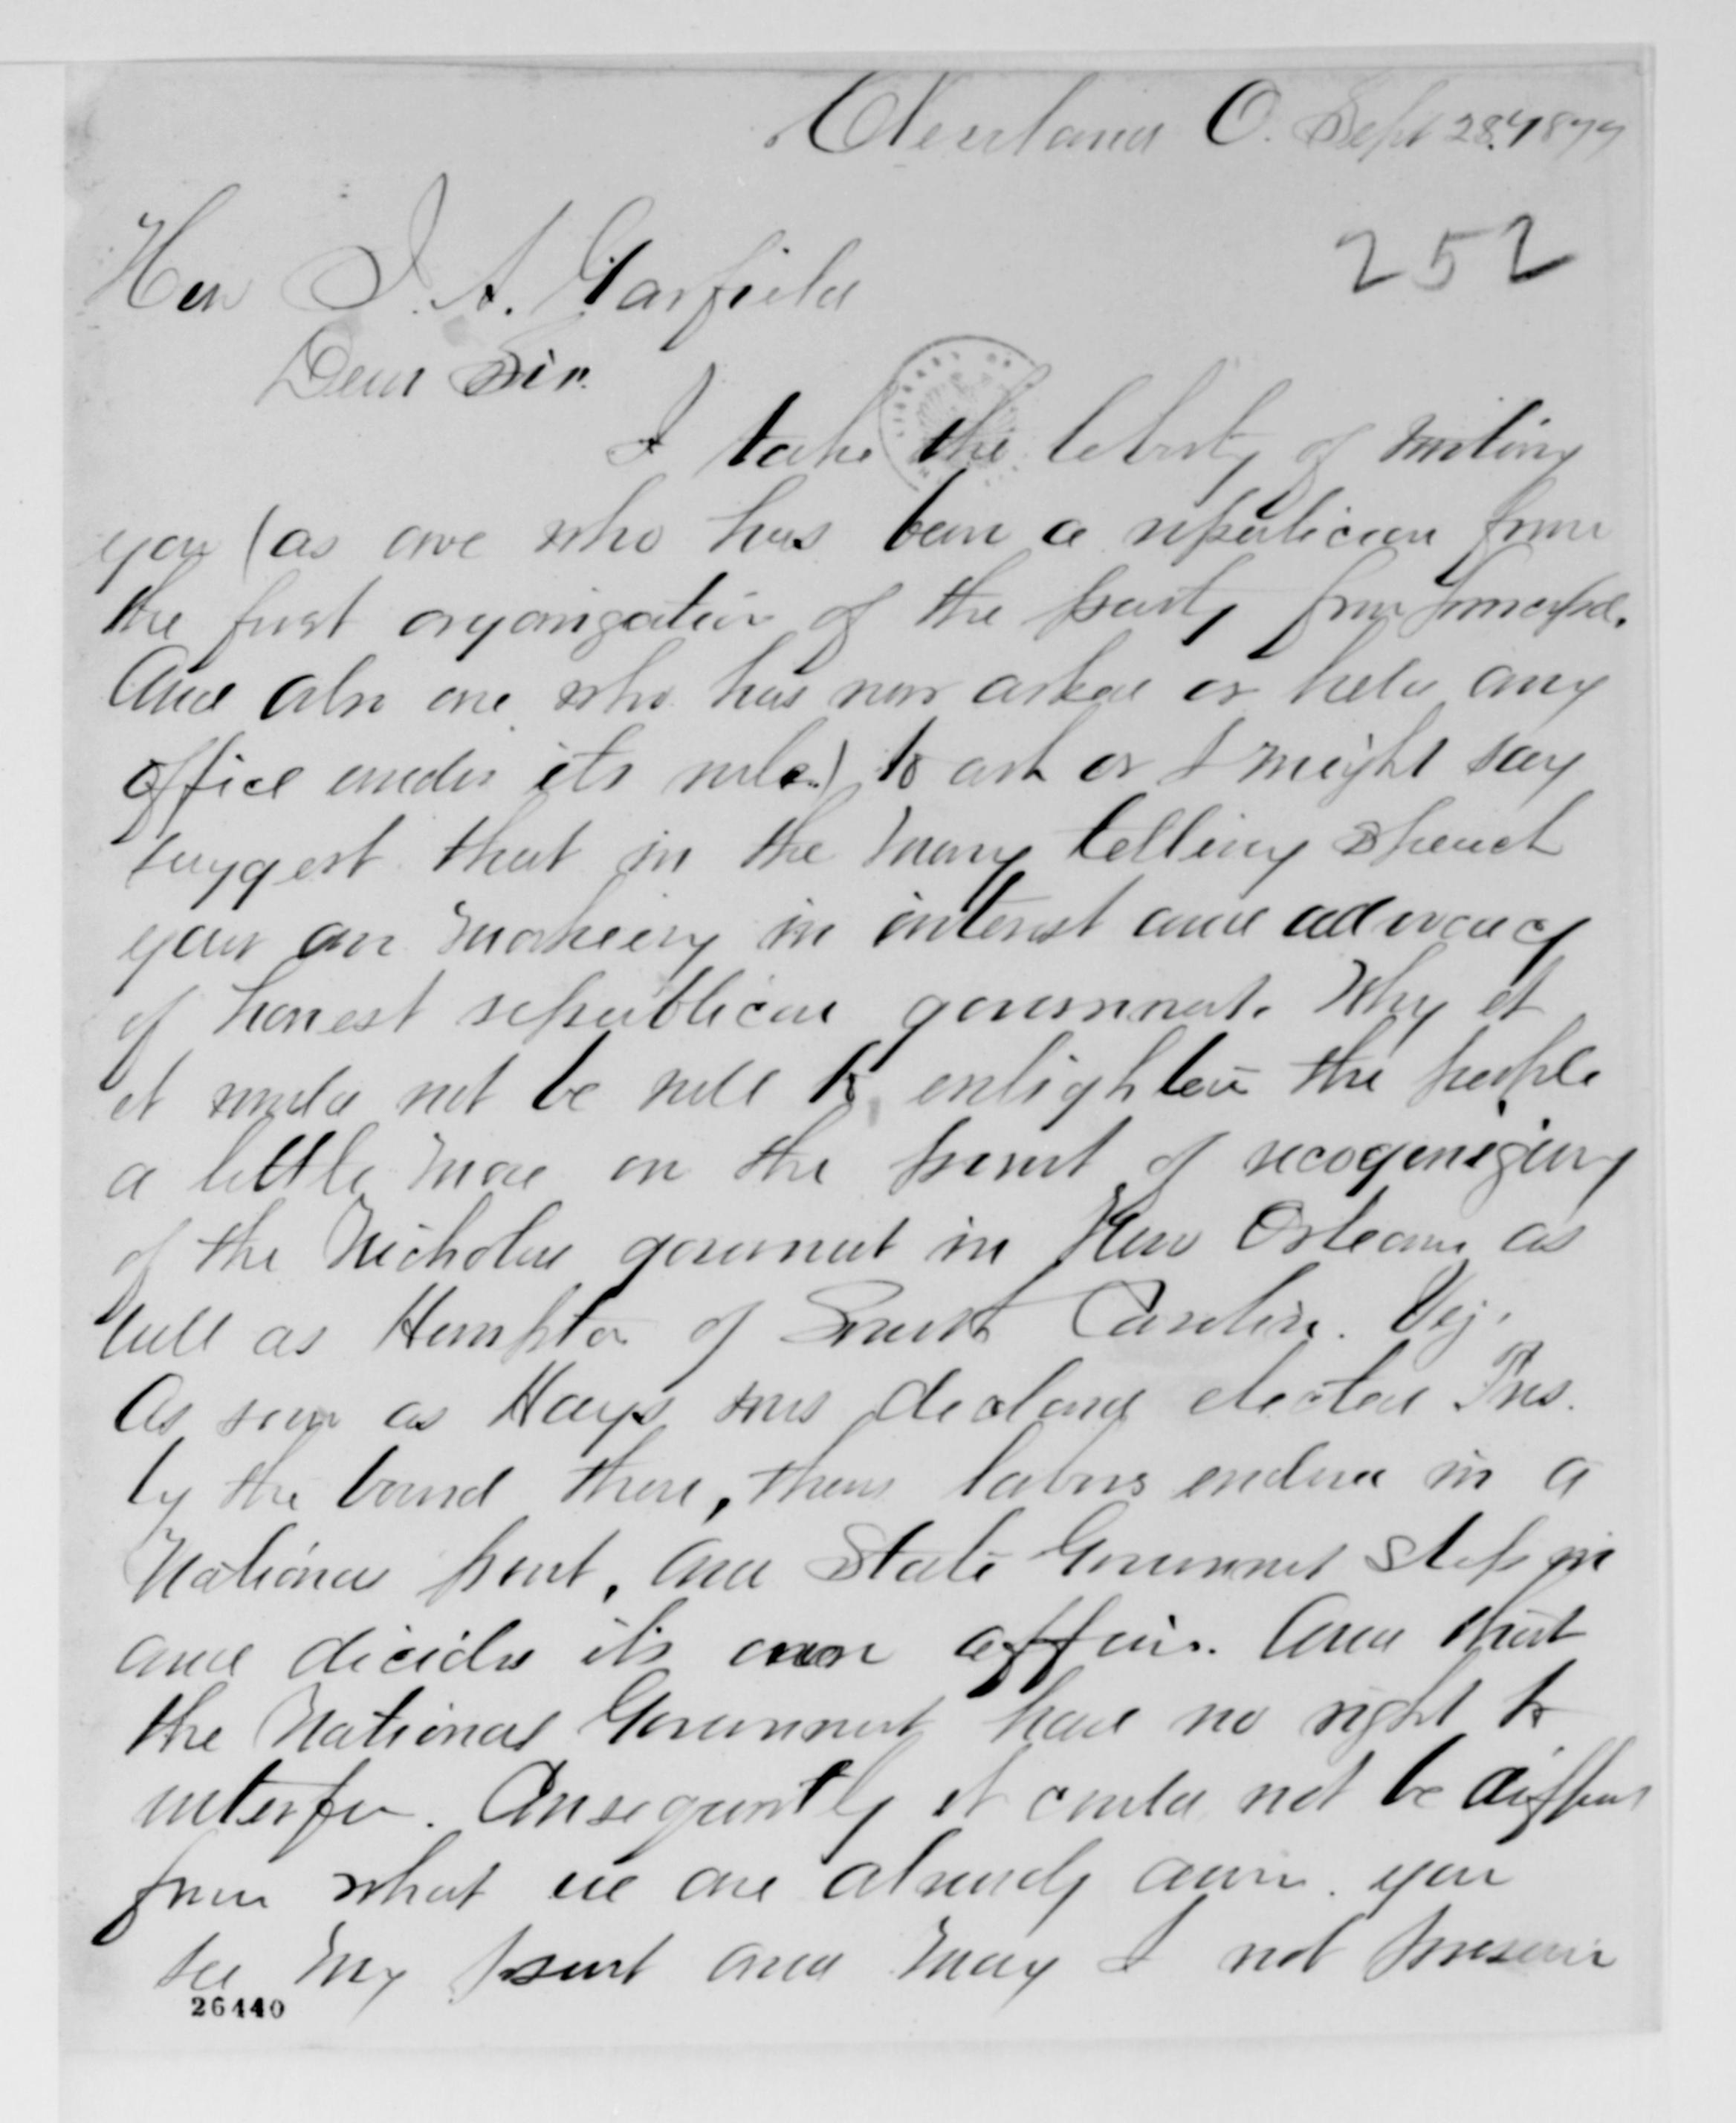 Cleveland O. Sept 28. 1877
252
Hon J. A. Garfield
Dear Sir.
I take the liberty of writing
you (as one who has been a republican from
the first organization of the party from
And also one who has never asked or held any
office under its rule.) to ask or I might say
suggest that in the many telling speech
your are makeing in interest and advocacy
of honest republican government. Why it
it would not be well to enlighten the people
a little more on the point of recogenizing
of the Nicholas goverment in New Orleans as
well as Hampton of South Carolina. Viz.
As soon as Hays was declared elected Pres.
by the board there, there labors ended in a
National point, and State Goverment steps in
and decides its own affairs. And that
the National Government have no right to
interfer. Consequently it could not be different
from what we are already . you
see my point and may I not presume
26440